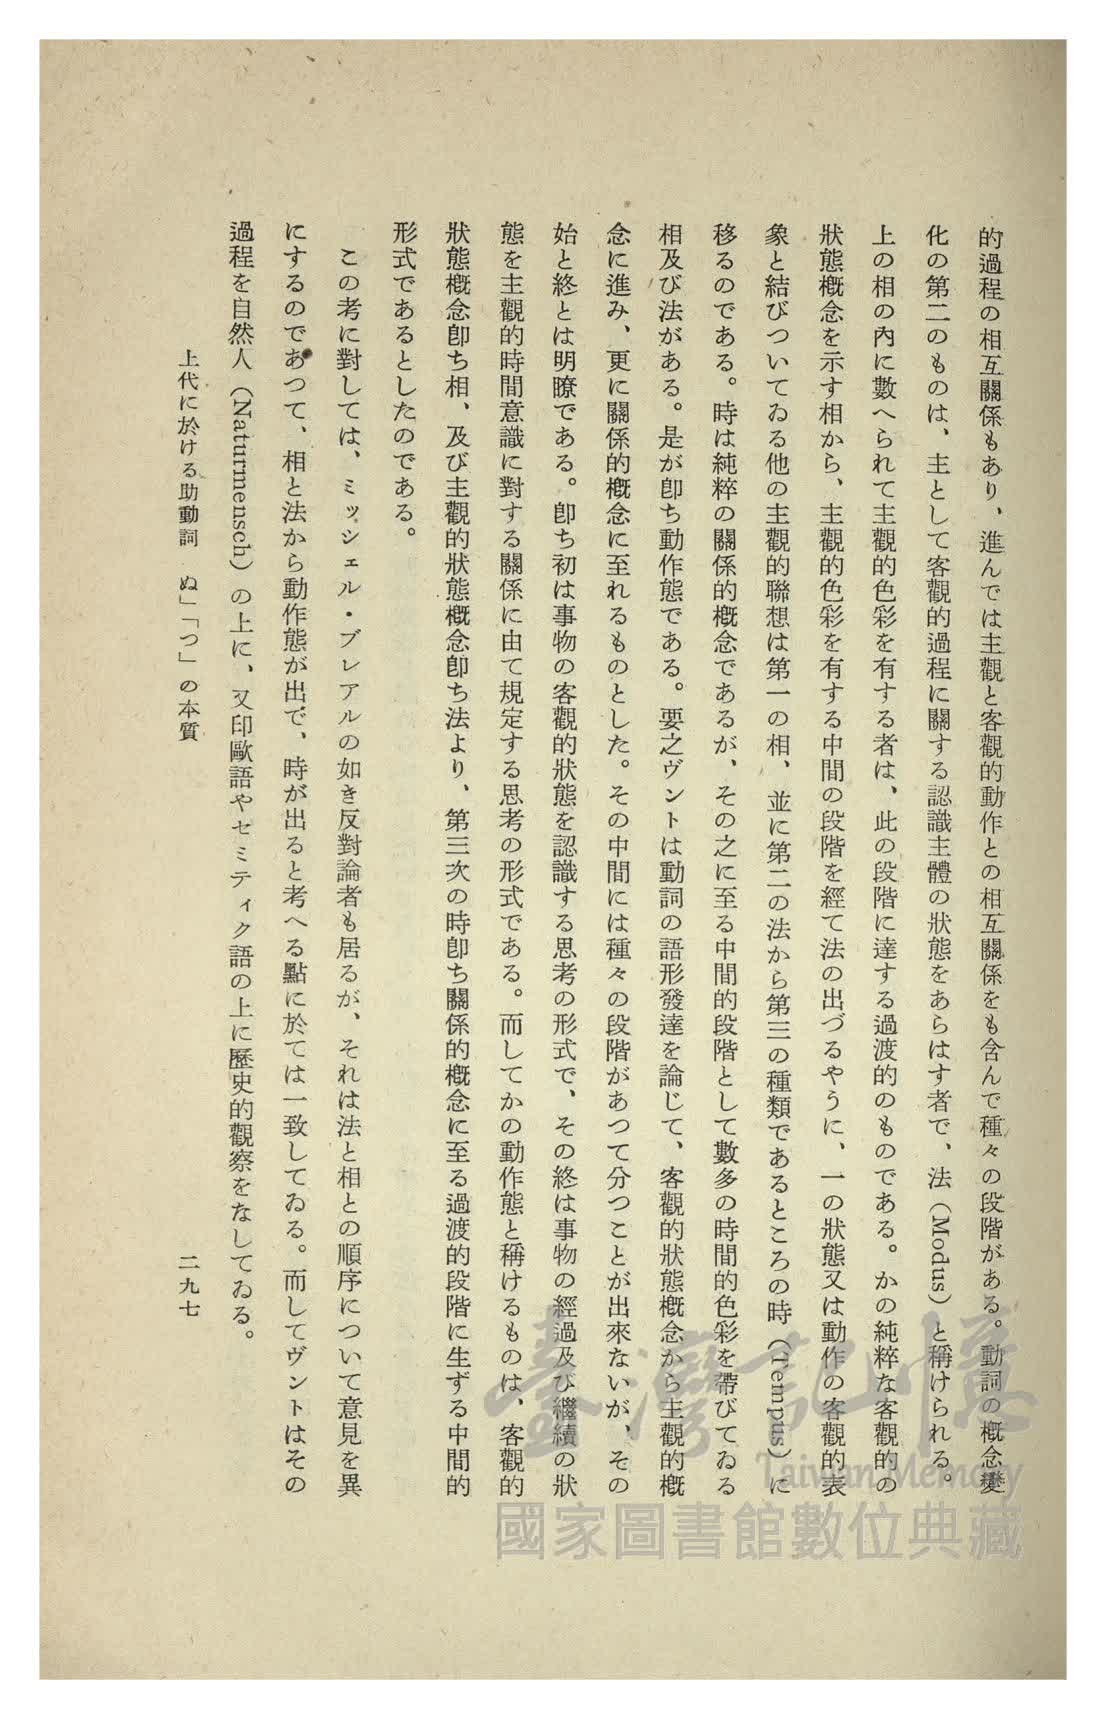 的過程の相互關係もあり、進んでは主觀と客觀的動作との相互關係をも含んで種々の段階がある。動詞の概念變
化の第二のものは、主として客觀的過程に關する認識主體の狀態をあらはす者で、法（Modus）と稱けられる。
上の相の內に數へられて主觀的色彩を有する者は、此の段階に達する過渡的のものである。かの純粹な客觀的の
狀態概念を示す相から、主觀的色彩を有する中間の段階を經て法の出づるやうに、一の狀態又は動作の客觀的表
象と結びついてゐる他の主觀的聯想は第一の相、並に第二の法から第三の種類であるところの時（Tempus）に
移るのである。時は純粹の關係的概念であるが、その之に至る中間的段階として數多の時間的色彩を帶びてゐる
相及び法がある。是が卽ち動作態である。要之ヴントは動詞の語形發達を論じて、客觀的狀態概念から主觀的概
念に進み、更に關係的概念に至れるものとした。その中間には種々の段階があつて分つことが出來ないが、その
始と終とは明瞭である。卽ち初は事物の客觀的狀態を認識する思考の形式で、その終は事物の經過及び繼續の狀
態を主觀的時間意識に對する關係に由て規定する思考の形式である。而してかの動作態と稱けるものは、客觀的
狀態概念卽ち相、及び主觀的狀態概念卽ち法より、第三次の時卽ち關係的概念に至る過渡的段階に生ずる中間的
形式であるとしたのである。
この考に對しては、ミッシェル・ブレアルの如き反對論者も居るが、それは法と相との順序について意見を異
にするのであつて、相と法から動作態が出で、時が出ると考へる點に於ては一致してゐる。而してヴントはその
過程を自然人（Naturmensch）の上に、又印歐語やセミティク語の上に歷史的觀察をなしてゐる。
上代に於ける助動詞　ぬ」「つ」の本質
二九七
臺灣記憶
Taiwan Memory
國家圖書館數位典藏